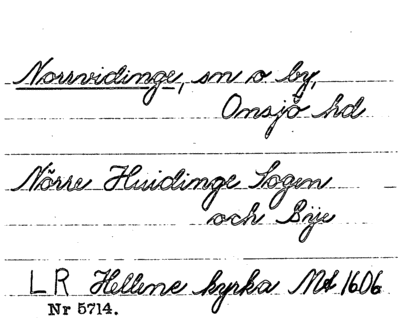 Norrvidinge, sn o. by,
Onsjö hd
Nörre Huidinge Sogen
och Bije
LR Hellene kyrka Md 1606
Nr 5714.